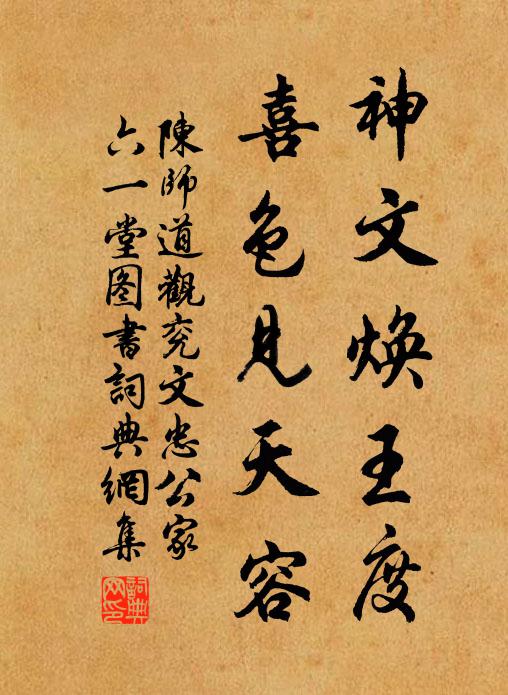 神文焕王度
喜色見天容
陳師道觀兖文忠公家
六一堂图書詞典網集
詞典网印